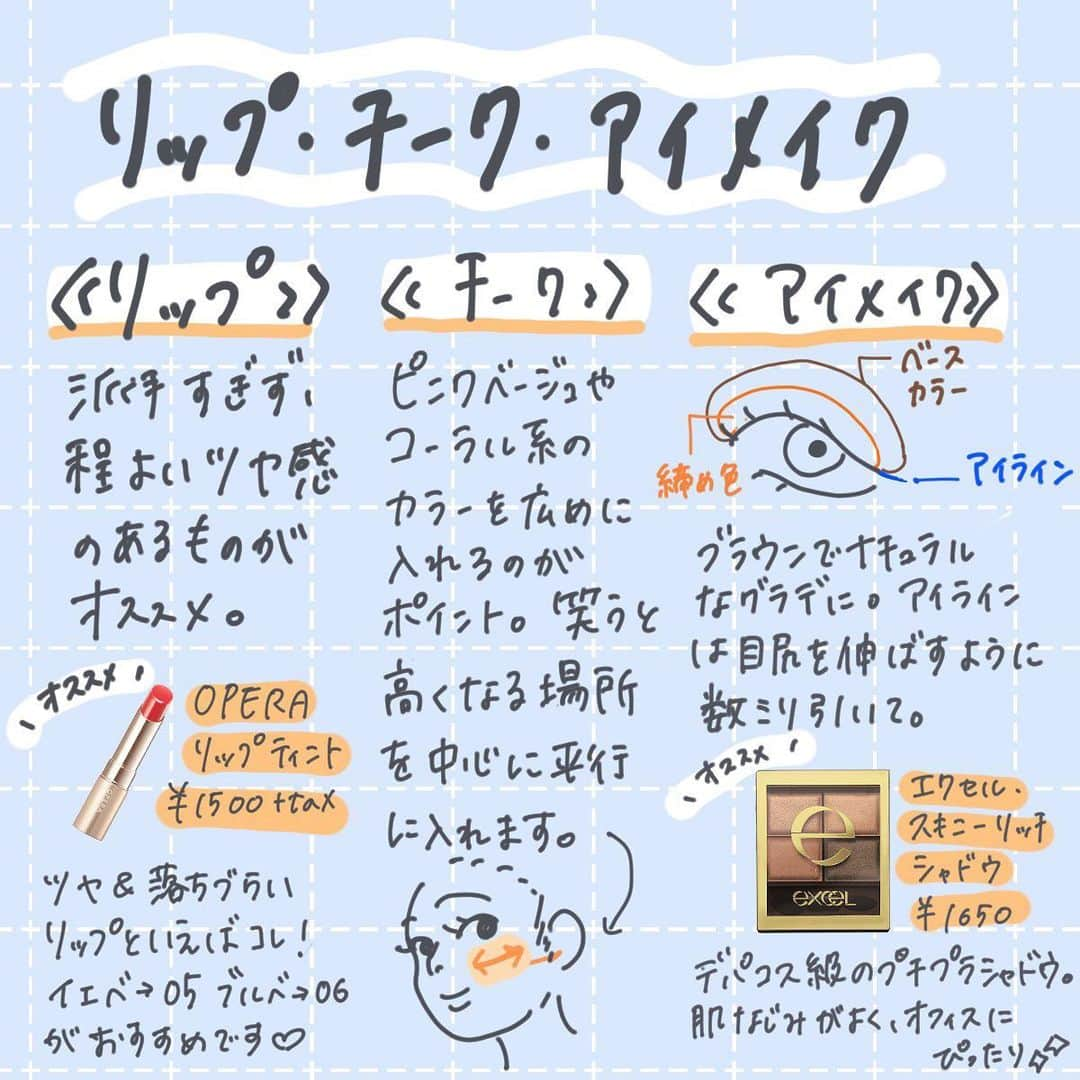 リップ・チーク・アイメイク
《リップ》
派手すぎず、
程よいツヤ感
のあるものが
オススメ。
オススメ
OPERA
リップティント
¥1500+tax
ツヤ&落ちづらい
リップといえばコレ!
イエベ→05 ブルベ→06
がおすすめです♡
《チーク》
ピンクベージュや
コーラル系の
カラーを広めに
入れるのが
ポイント。笑うと
高くなる場所
を中心に平行
に入れます。
《アイメイク》
ベース
カラー
締め色
アイライン
ブラウンでナチュラル
なグラデに。アイライン
は目尻を伸ばすように
数ミリ引いて。
オススメ
e
excel
エクセル・
スキニーリッチ
シャドウ
¥1650
デパコス級のプチプラシャドウ。
肌なじみがよく、オフィスに
ぴったり